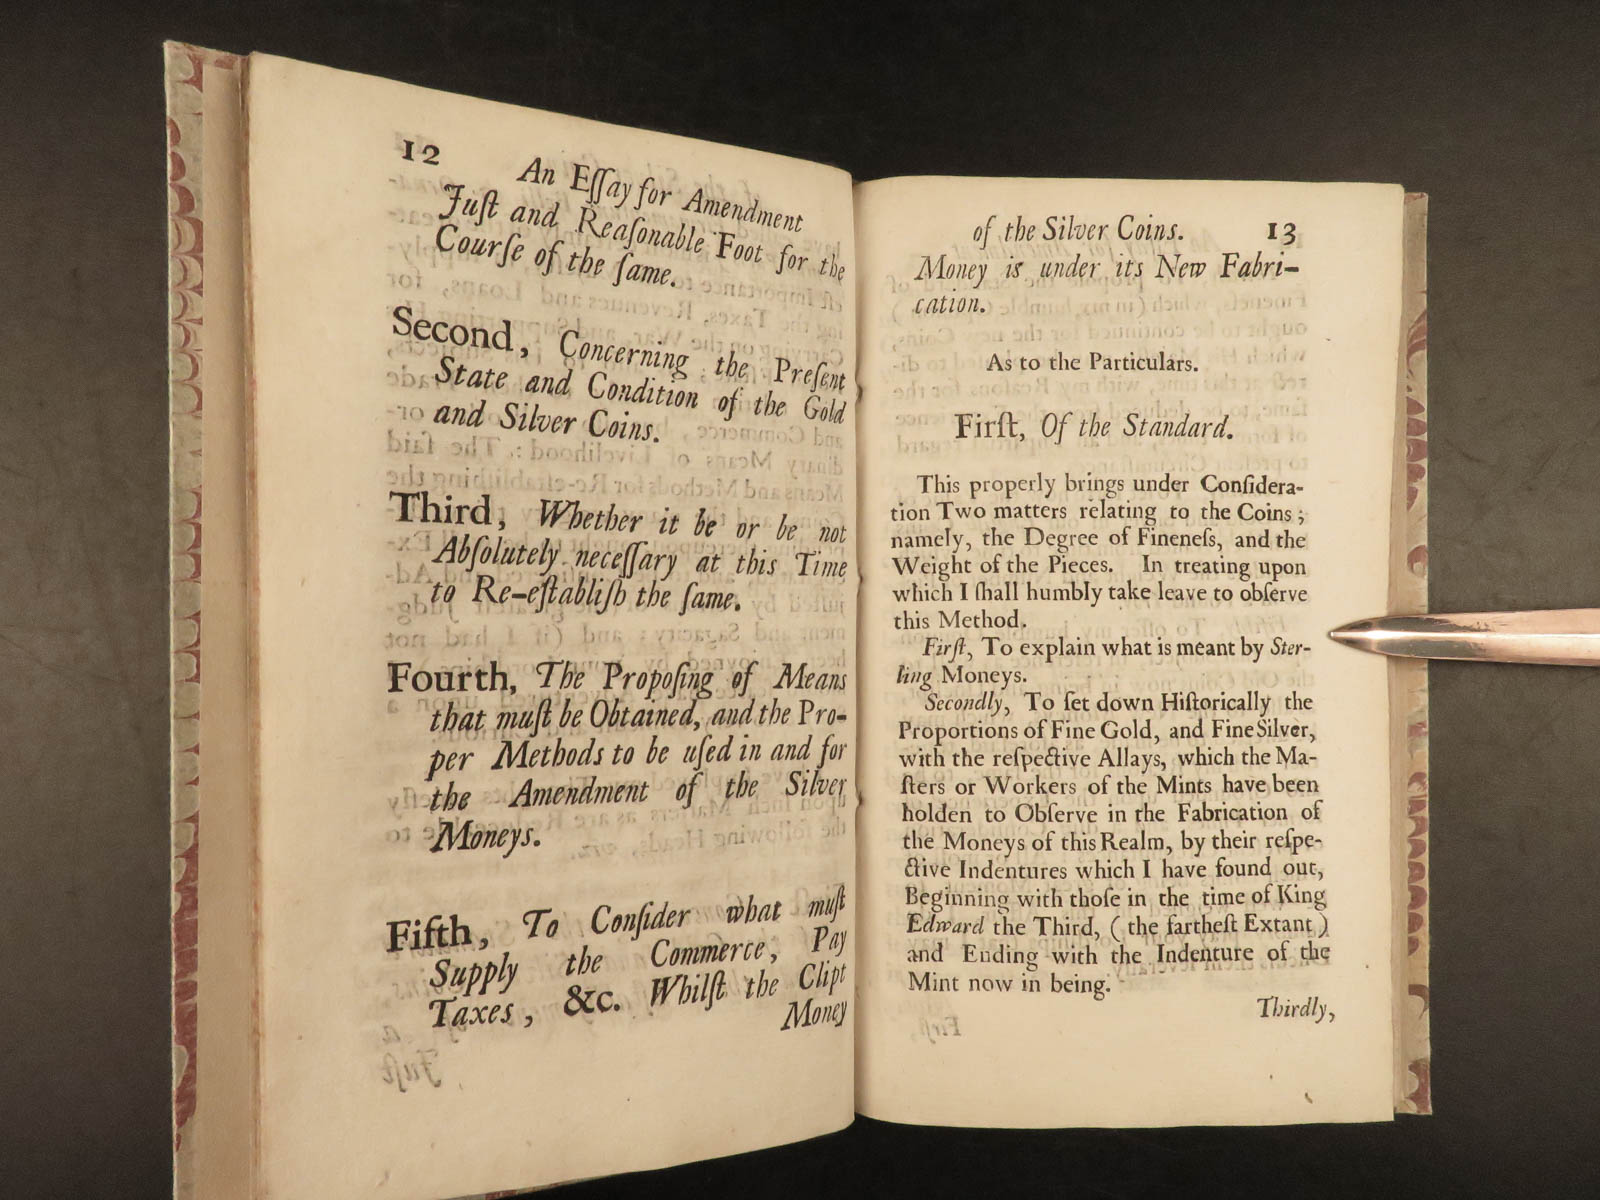 12
An Eſſay for Amendment
Juſt and Reaſonable Foot for the
Courſe of the ſame.
Second, Concerning the Preſent
State and Condition of the Gold
and Silver Coins.
Third, Whether it be or be not
Abſolutely neceſſary at this Time
to Re-eſtabliſh the ſame.
Fourth, The Propoſing of Means
that muſt be Obtained, and the Pro-
per Methods to be uſed in and for
the Amendment of the Silver
Moneys.
Fifth, To Conſider what muſt
Supply the Commerce, Pay
Taxes, &c. Whilſt the Clipt
Money
of the Silver Coins. 13
Money is under its New Fabri-
cation.
As to the Particulars.
Firſt, Of the Standard.
This properly brings under Conſidera-
tion Two matters relating to the Coins;
namely, the Degree of Fineneſs, and the
Weight of the Pieces. In treating upon
which I ſhall humbly take leave to obſerve
this Method.
Firſt, To explain what is meant by Ster-
ling Moneys.
Secondly, To ſet down Hiſtorically the
Proportions of Fine Gold, and Fine Silver,
with the reſpective Allays, which the Ma-
ſters or Workers of the Mints have been
holden to Obſerve in the Fabrication of
the Moneys of this Realm, by their reſpe-
ctive Indentures which I have found out,
Beginning with thoſe in the time of King
Edward the Third, (the fartheſt Extant)
and Ending with the Indenture of the
Mint now in being.
Thirdly,